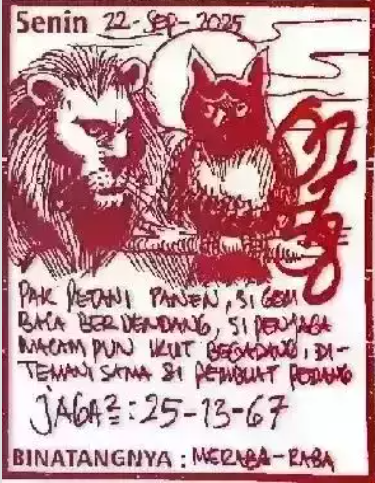 Senin 22-Sep-2025
PAK PETANI PANEN, SI GEM
BALA BERDENDANG, SI PENJAGA
MACAM PUN IKUT BEGADANG, DI-
TEMANI SAMA SI PEMBUAT PEDANG
JAGA2: 25-13-67
BINATANGNYA: MERABA-RABA